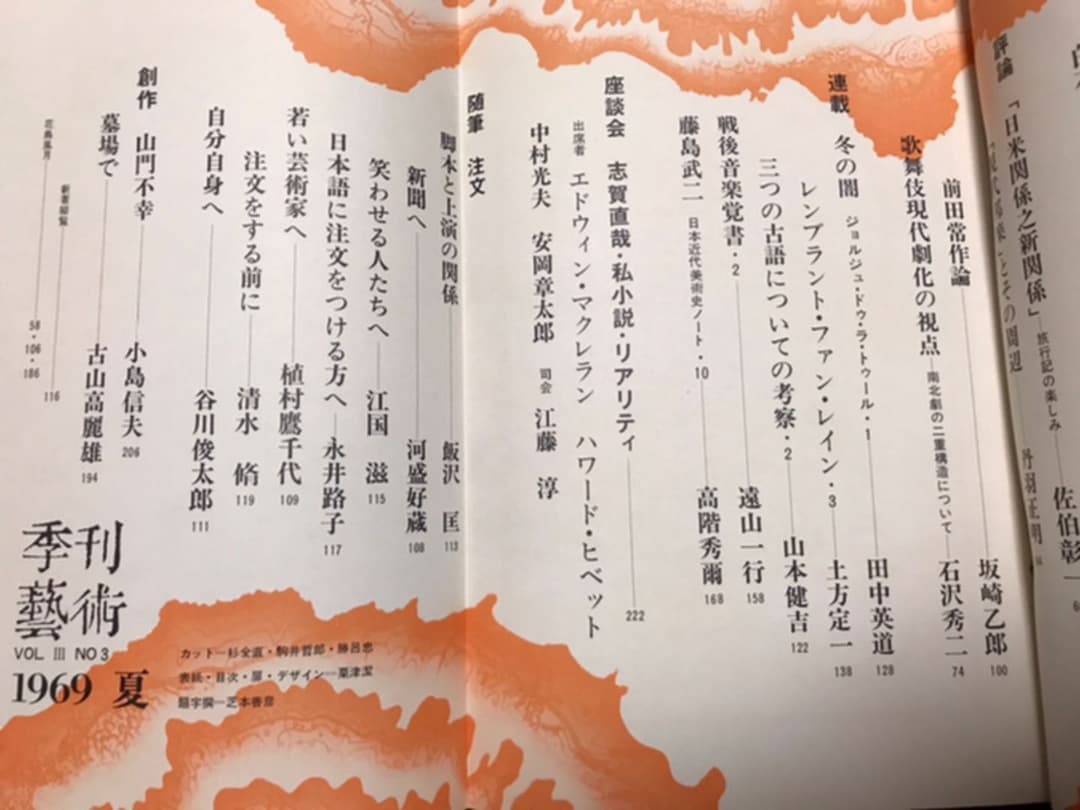 評論
「日米関係之新関係」 旅行記の楽しみ 佐伯彰一
とその周辺 丹羽正明
前田常作論 坂崎乙郎 100
歌舞伎現代劇化の視点 南北劇の二重構造について 石沢秀二 74
連載 冬の闇 ジョルジュ・ドゥ・ラ・トゥール・1 田中英道 128
レンブラント・ファン・レイン・3 土方定一 138
三つの古語についての考察・2 山本健吉 122
戦後音楽覚書・2 遠山一行 158
藤島武二 日本近代美術史ノート・10 高階秀爾 168
座談会 志賀直哉・私小説・リアリティ 222
出席者 エドウィン・マクレラン ハワード・ヒベット
中村光夫 安岡章太郎 司会 江藤 淳
随筆 注文
脚本と上演の関係 飯沢 匡 113
新聞へ 河盛好蔵 108
笑わせる人たちへ 江国 滋 115
日本語に注文をつける方へ 永井路子 117
若い芸術家へ 植村鷹千代 109
注文をする前に 清水 脩 119
自分自身へ 谷川俊太郎 111
創作 山門不幸 小島信夫 206
墓場で 古山高麗雄 194
新着縦覧 116
花鳥風月 58・106・186
季刊
藝術
VOL Ⅲ NO3
1969 夏
カット―杉全直・駒井哲郎・勝呂忠
表紙・目次・扉・デザイン―粟津潔
題字撰―芝本善彦